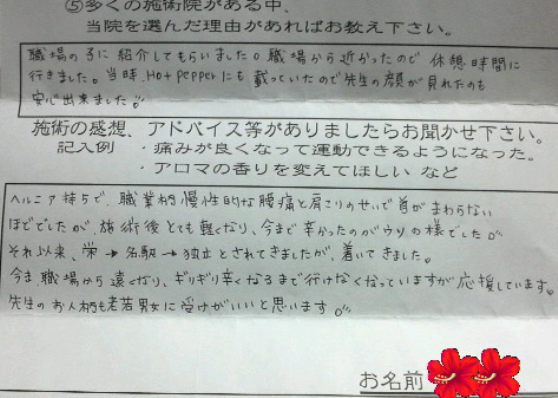 ⑤多くの施術院がある中、
当院を選んだ理由があればお教え下さい。
職場の子に紹介してもらいました。職場から近かったので休憩時間に
行きました。当時、Hot Pepperにも載っていたので先生の顔が見れたのも
安心出来ました。
施術の感想、アドバイス等がありましたらお聞かせ下さい。
記入例 ・痛みが良くなって運動できるようになった。
・アロマの香りを変えてほしい など
ヘルニア持ちで、職業柄慢性的な腰痛と肩こりのせいで首がまわらない
ほどでしたが、施術後とても軽くなり、今まで辛かったのがウソの様でした。
それ以来、栄→名駅→独立とされてきましたが、着いてきました。
今、職場から遠くなり、ギリギリ辛くなるまで行けなくなっていますが応援しています。
先生のお人柄も老若男女に受けがいいと思います。
お名前